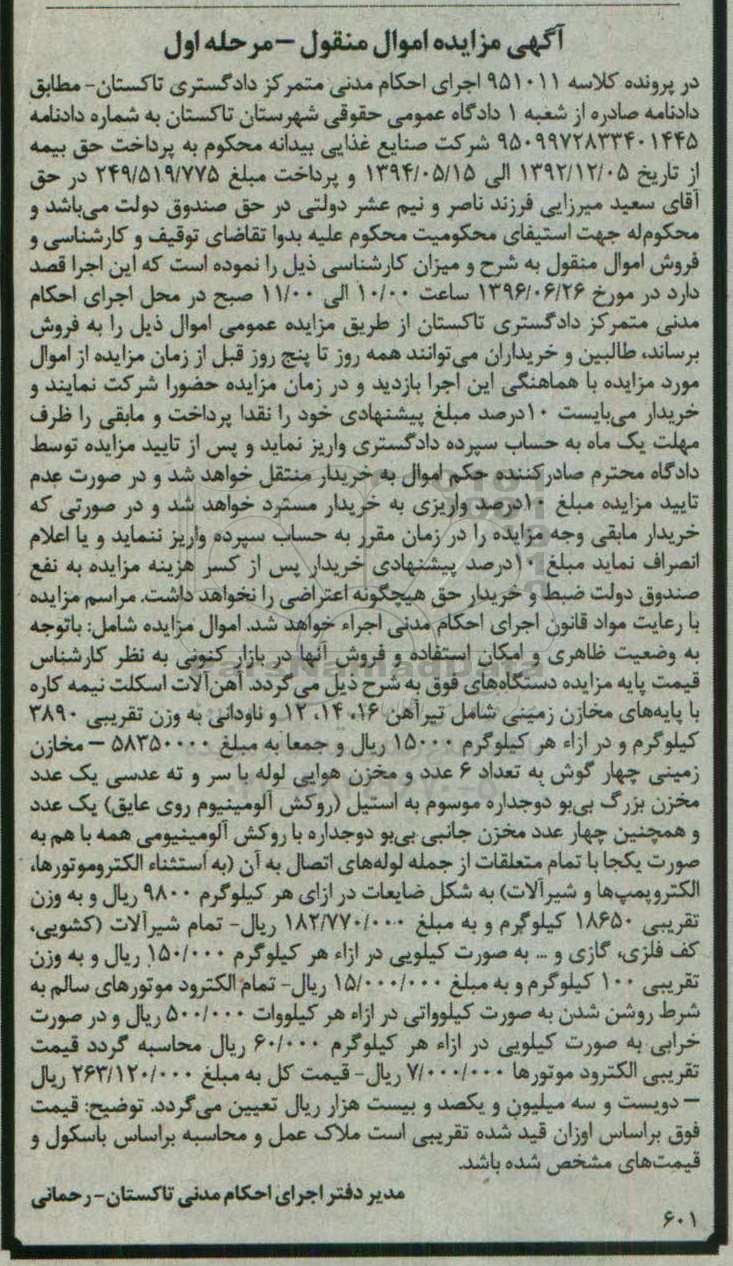 آگهی مزایده اموال منقول – مرحله اول
در پرونده کلاسه ۹۵۱۰۱۱ اجرای احکام مدنی متمرکز دادگستری تاکستان- مطابق
دادنامه صادره از شعبه ۱ دادگاه عمومی حقوقی شهرستان تاکستان به شماره دادنامه
۹۵۰۹۹۷۲۸۳۳۴۰۱۴۴۵ شرکت صنایع غذایی بیدانه محکوم به پرداخت حق بیمه
از تاریخ ۱۳۹۲/۱۲/۰۵ الی ۱۳۹۴/۰۵/۱۵ و پرداخت مبلغ ۲۴۹/۵۱۹/۷۷۵ در حق
آقای سعید میرزایی فرزند ناصر و نیم عشر دولتی در حق صندوق دولت می‌باشد و
محکوم‌له جهت استیفای محکومیت محکوم علیه بدوا تقاضای توقیف و کارشناسی و
فروش اموال منقول به شرح و میزان کارشناسی ذیل را نموده است که این اجرا قصد
دارد در مورخ ۱۳۹۶/۰۶/۲۶ ساعت ۱۰/۰۰ الی ۱۱/۰۰ صبح در محل اجرای احکام
مدنی متمرکز دادگستری تاکستان از طریق مزایده عمومی اموال ذیل را به فروش
برساند، طالبین و خریداران می‌توانند همه روز تا پنج روز قبل از زمان مزایده از اموال
مورد مزایده با هماهنگی این اجرا بازدید و در زمان مزایده حضورا شرکت نمایند و
خریدار می‌بایست ۱۰درصد مبلغ پیشنهادی خود را نقدا پرداخت و مابقی را ظرف
مهلت یک ماه به حساب سپرده دادگستری واریز نماید و پس از تایید مزایده توسط
دادگاه محترم صادرکننده حکم اموال به خریدار منتقل خواهد شد و در صورت عدم
تایید مزایده مبلغ ۱۰درصد واریزی به خریدار مسترد خواهد شد و در صورتی که
خریدار مابقی وجه مزایده را در زمان مقرر به حساب سپرده واریز ننماید و یا اعلام
انصراف نماید مبلغ ۱۰درصد پیشنهادی خریدار پس از کسر هزینه مزایده به نفع
صندوق دولت ضبط و خریدار حق هیچگونه اعتراضی را نخواهد داشت. مراسم مزایده
با رعایت مواد قانون اجرای احکام مدنی اجراء خواهد شد. اموال مزایده شامل: باتوجه
به وضعیت ظاهری و امکان استفاده و فروش آنها در بازار کنونی به نظر کارشناس
قیمت پایه مزایده دستگاه‌های فوق به شرح ذیل می‌گردد. آهن‌آلات اسکلت نیمه کاره
با پایه‌های مخازن زمینی شامل تیرآهن ۱۶، ۱۴، ۱۲ و ناودانی به وزن تقریبی ۳۸۹۰
کیلوگرم و در ازاء هر کیلوگرم ۱۵۰۰۰ ریال و جمعا به مبلغ ۵۸۳۵۰۰۰۰ – مخازن
زمینی چهار گوش به تعداد ۶ عدد و مخزن هوایی لوله با سر و ته عدسی یک عدد
مخزن بزرگ بی‌بو دوجداره موسوم به استیل (روکش آلومینیوم روی عایق) یک عدد
و همچنین چهار عدد مخزن جانبی بی‌بو دوجداره با روکش آلومینیومی همه با هم به
صورت یکجا با تمام متعلقات از جمله لوله‌های اتصال به آن (به استثناء الکتروموتورها،
الکتروپمپ‌ها و شیرآلات) به شکل ضایعات در ازای هر کیلوگرم ۹۸۰۰ ریال و به وزن
تقریبی ۱۸۶۵۰ کیلوگرم و به مبلغ ۱۸۲/۷۷۰/۰۰۰ ریال- تمام شیرآلات (کشویی،
کف فلزی، گازی و ... به صورت کیلویی در ازاء هر کیلوگرم ۱۵۰/۰۰۰ ریال و به وزن
تقریبی ۱۰۰ کیلوگرم و به مبلغ ۱۵/۰۰۰/۰۰۰ ریال- تمام الکترود موتورهای سالم به
شرط روشن شدن به صورت کیلوواتی در ازاء هر کیلووات ۵۰۰/۰۰۰ ریال و در صورت
خرابی به صورت کیلویی در ازاء هر کیلوگرم ۶۰/۰۰۰ ریال محاسبه گردد قیمت
تقریبی الکترود موتورها ۷/۰۰۰/۰۰۰ ریال- قیمت کل به مبلغ ۲۶۳/۱۲۰/۰۰۰ ریال
– دویست و سه میلیون و یکصد و بیست هزار ریال تعیین می‌گردد. توضیح: قیمت
فوق براساس اوزان قید شده تقریبی است ملاک عمل و محاسبه براساس باسکول و
قیمت‌های مشخص شده باشد.
مدیر دفتر اجرای احکام مدنی تاکستان- رحمانی
۶۰۱